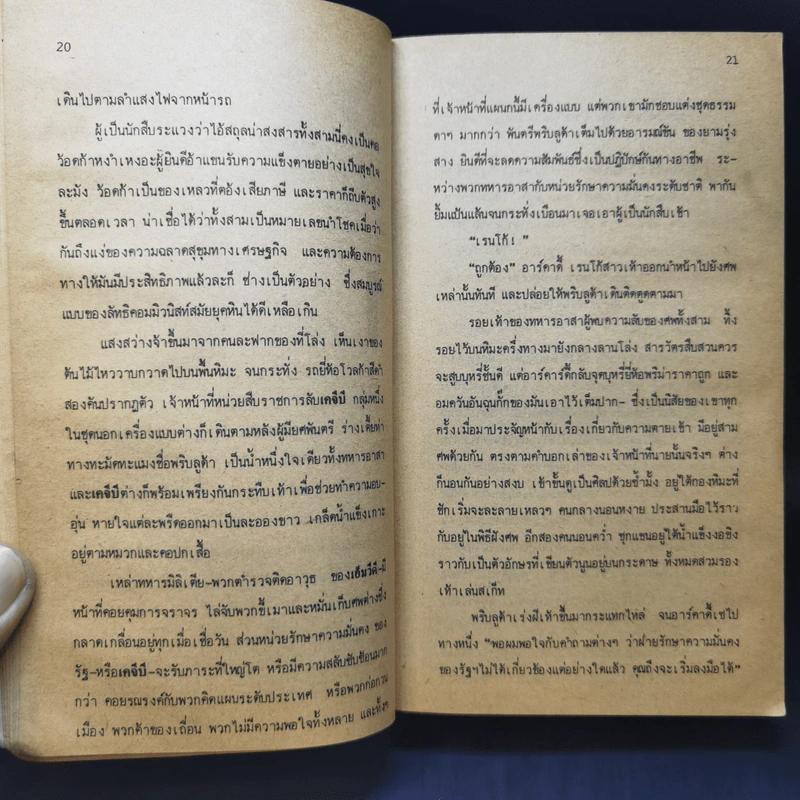 20
เดินไปตามลำแสงไฟจากหน้ารถ
ผู้เป็นนักสืบระแวงว่าไอ้สถุลน่าสงสารทั้งสามนี่คงเป็นคอ
ว้อดก้าหงำเหงอะผู้ยินดีอ้าแขนรับความแข็งตายอย่างเป็นสุขใจ
ละมัง ว้อดก้าเป็นของเหลวที่ต้องเสียภาษี และราคาก็ถีบตัวสูง
ขึ้นตลอดเวลา น่าเชื่อได้ว่าทั้งสามเป็นหมายเลขนำโชคเมื่อว่า
กันถึงแง่ของความฉลาดสุขุมทางเศรษฐกิจ และความต้องการ
ทางให้มันมีประสิทธิภาพแล้วละก็ ช่างเป็นตัวอย่าง ซึ่งสมบูรณ์
แบบของลัทธิคอมมิวนิสท์สมัยยุคหินได้ดีเหลือเกิน
แสงสว่างจ้าขึ้นมาจากคนละฟากของที่โล่ง เห็นเงาของ
ต้นไม้ไหววาบกวาดไปบนพื้นหิมะ จนกระทั่ง รถยี่ห้อโวลก้าสีดำ
สองคันปรากฏตัว เจ้าหน้าที่หน่วยสืบราชการลับเคจีบี กลุ่มหนึ่ง
ในชุดนอกเครื่องแบบต่างก็เดินตามหลังผู้มียศพันตรี ร่างเตี้ยท่า
ทางทะมัดทะแมงชื่อพริบลูด้า เป็นน้ำหนึ่งใจเดียวทั้งทหารอาสา
และเคจีบีต่างก็พร้อมเพรียงกันกระทืบเท้าเพื่อช่วยทำความอบ-
อุ่น หายใจแต่ละพรืดออกมาเป็นละอองขาว เกล็ดน้ำแข็งเกาะ
อยู่ตามหมวกและคอปกเสื้อ
เหล่าทหารมิลิเตีย-พวกตำรวจติดอาวุธ ของเอ็มวีดี-มี
หน้าที่คอยคุมการจราจร ไล่จับพวกขี้เมาและหมั่นเก็บศพต่างซึ่ง
กลาดเกลื่อนอยู่ทุกเมื่อเชื่อวัน ส่วนหน่วยรักษาความมั่นคง ของ
รัฐ-หรือเคจีบี-จะรับภาระที่ใหญ่โต หรือมีความสลับซับซ้อนมาก
กว่า คอยรณรงค์กับพวกคิดแผนระดับประเทศ หรือพวกก่อกวน
เมือง พวกค้าของเถื่อน พวกไม่มีความพอใจทั้งหลาย และทั้งๆ
21
ที่เจ้าหน้าที่แผนกนี้มีเครื่องแบบ แต่พวกเขามักชอบแต่งชุดธรรม
ดาๆ มากกว่า พันตรีพริบลูด้าเต็มไปด้วยอารมณ์ขัน ของยามรุ่ง
สาง ยินดีที่จะลดความสัมพันธ์ซึ่งเป็นปฏิปักษ์กันทางอาชีพ ระ-
หว่างพวกทหารอาสากับหน่วยรักษาความมั่นคงระดับชาติ พากัน
ยิ้มแป้นแล้นจนกระทั่งเบือนมาเจอเอาผู้เป็นนักสืบเข้า
“เรนโก้!”
“ถูกต้อง” อาร์คาดี้ เรนโก้สาวเท้าออกนำหน้าไปยังศพ
เหล่านั้นทันที และปล่อยให้พริบลูด้าเดินติดตูดตามมา
รอยเท้าของทหารอาสาผู้พบความลับของศพทั้งสาม ทิ้ง
รอยไว้บนหิมะครึ่งทางมายังกลางลานโล่ง สารวัตรสืบสวนควร
จะสูบบุหรี่ชั้นดี แต่อาร์คาร์ดี้กลับจุดบุหรี่ยี่ห้อพริม่าราคาถูก และ
อมควันอันฉุนกึ๊กของมันเอาไว้เต็มปาก- ซึ่งเป็นนิสัยของเขาทุก
ครั้งเมื่อมาประจัญหน้ากับเรื่องเกี่ยวกับความตายเข้า มีอยู่สาม
ศพด้วยกัน ตรงตามคำบอกเล่าของเจ้าหน้าที่นายนั้นจริงๆ ต่าง
ก็นอนกันอย่างสงบ เข้าขั้นดูเป็นศิลปด้วยซ้ำมั้ง อยู่ใต้กองหิมะที่
ชักเริ่มจะละลายเหลวๆ คนกลางนอนหงาย ประสานมือไว้ราว
กับอยู่ในพิธีฝังศพ อีกสองคนนอนคว่ำ ซุกแขนอยู่ใต้น้ำแข็งงอขิง
ราวกับเป็นตัวอักษรที่เขียนตัวนูนอยู่บนกระดาษ ทั้งหมดสวมรอง
เท้าเล่นสเก็ท
พริบลูด้าเร่งฝีเท้าขึ้นมากระแทกไหล่ จนอาร์คาดี้เซไป
ทางหนึ่ง “พอผมพอใจกับคำถามต่างๆ ว่าฝ่ายรักษาความมั่นคง
ของรัฐฯไม่ได้เกี่ยวข้องแต่อย่างใดแล้ว คุณถึงจะเริ่มลงมือได้”